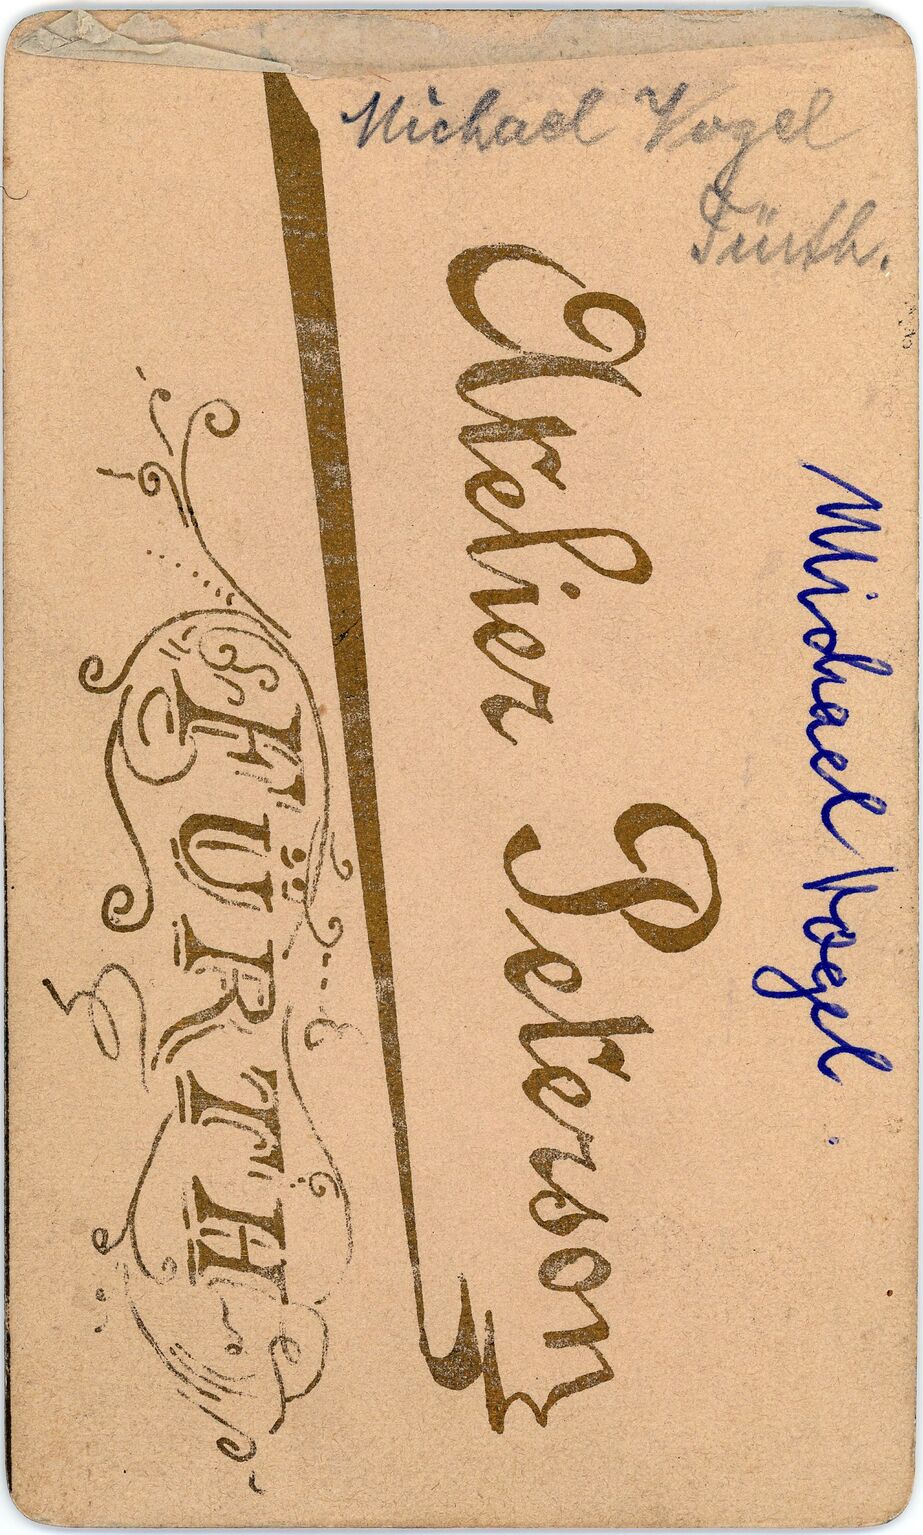 Michael Vogel
Fürth.
Michael Vogel.
Atelier Peterson
FÜRTH